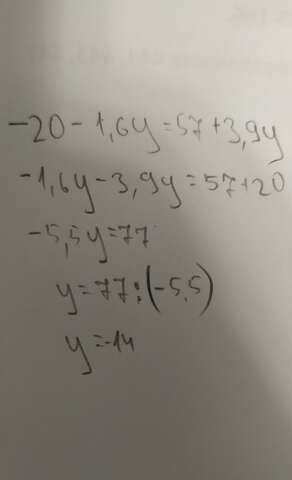 -20-1,6y=57+3,9y
-1,6y-3,9y=57+20
-5,5y=77
y=77:(-5,5)
y=-14